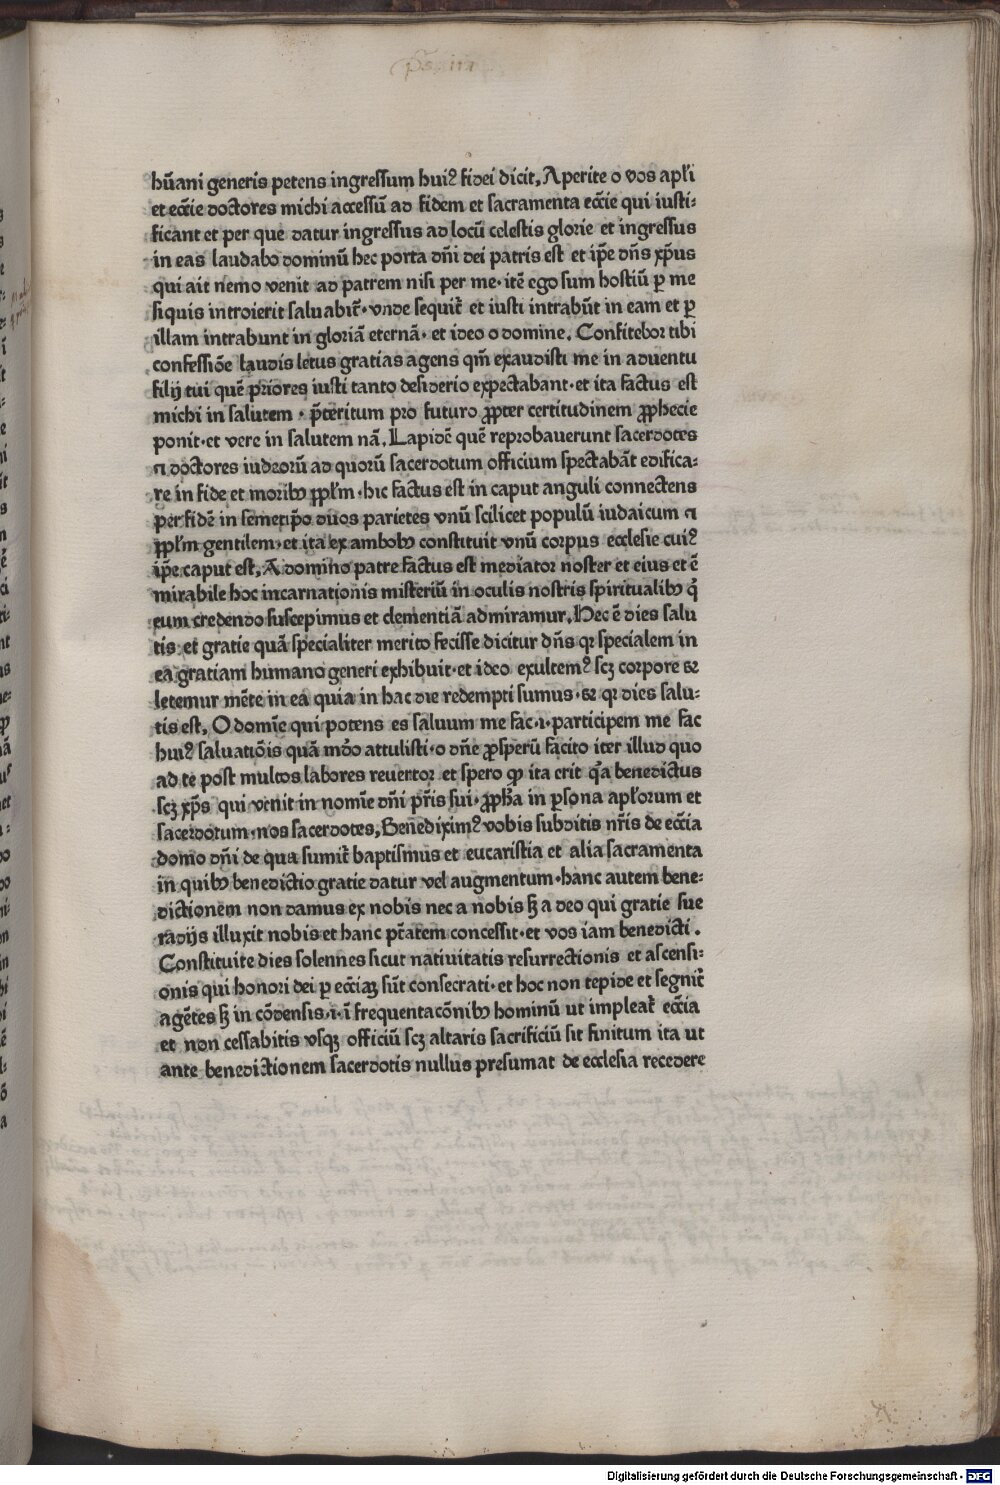 hūani generis petens ingressum huiꝰ fidei dicit. Aperite o vos apl'i
et ecc̄ie doctores michi accessū ad fidem et sacramenta ecc̄ie qui iusti⸗
ficant et per que datur ingressus ad locū celestis glorie et ingressus
in eas laudabo dominū hec porta dn̄i dei patris est et ip̄e dn̄s xp̄us
qui ait nemo venit ad patrem nisi per me· itē ego sum hostiū ꝑ me
siquis introierit saluabit᷑· vnde sequit᷑ et iusti intrabūt in eam et ꝑ
illam intrabunt in gloriā eternā· et ideo o domine. Confitebor tibi
confessiōe laudis letus gratias agens qm̄ exaudisti me in aduentu
filij tui quē priores iusti tanto desiderio expectabant· et ita factus est
michi in salutem · p̄teritum pro futuro ꝓpter certitudinem ꝓphecie
ponit· et vere in salutem nā. Lapidē quē reprobauerunt sacerdotes
⁊ doctores iudeorū ad quorū sacerdotum officium spectabāt edifica⸗
re in fide et moribꝫ ꝓpl'm · hic factus est in caput anguli connectens
per fidē in semetip̄o duos parietes vnū scilicet populū iudaicum ⁊
ꝓpl'm gentilem· et ita ex ambobꝫ constituit vnū corpus ecclesie cuiꝰ
ip̄e caput est. A domino patre factus est mediator noster et eius et ē
mirabile hoc incarnationis misteriū in oculis nostris spiritualibꝫ q̇
eum credendo suscepimus et clementiā admiramur. Hec ē dies salu
tis et gratie quā specialiter merito fecisse dicitur dn̄s qꝛ specialem in
ea gratiam humano generi exhibuit· et ideo exultemꝰ scꝫ corpore et
letemur mēte in ea quia in hac die redempti sumus· et qꝛ dies salu⸗
tis est. O domīe qui potens es saluum me fac· i· participem me fac
huiꝰ saluatiōis quā mōo attulisti· o dn̄e ꝓsperū facito iter illud quo
ad te post multos labores reuertor et spero ꝙ ita erit q̄a benedictus
scꝫ xp̄s qui venit in nomīe dn̄i pr̄is sui· ꝓph̄a in ꝑsona apl'orum et
sacerdotum· nos sacerdotes. Benediximꝰ vobis subditis nr̄is de ecc̄ia
domo dn̄i de qua sumit᷑ baptismus et eucaristia et alia sacramenta
in quibꝫ benedictio gratie datur vel augmentum· hanc autem bene⸗
dictionem non damus ex nobis nec a nobis sꝫ a deo qui gratie sue
radijs illuxit nobis et hanc pt̄atem concessit· et vos iam benedicti .
Constituite dies solennes sicut natiuitatis resurrectionis et ascensi⸗
onis qui honori dei ꝑ ecc̄iaꝫ sūt consecrati· et hoc non tepide et segnit᷑
agētes sꝫ in cōdensis· i· ī frequentacōnibꝫ hominū ut impleat᷑ ecc̄ia
et non cessabitis vsqꝫ officiū scꝫ altaris sacrificiū sit finitum ita ut
ante benedictionem sacerdotis nullus presumat de ecclesia recedere
Digitalisierung gefördert durch die Deutsche Forschungsgemeinschaft - DFG